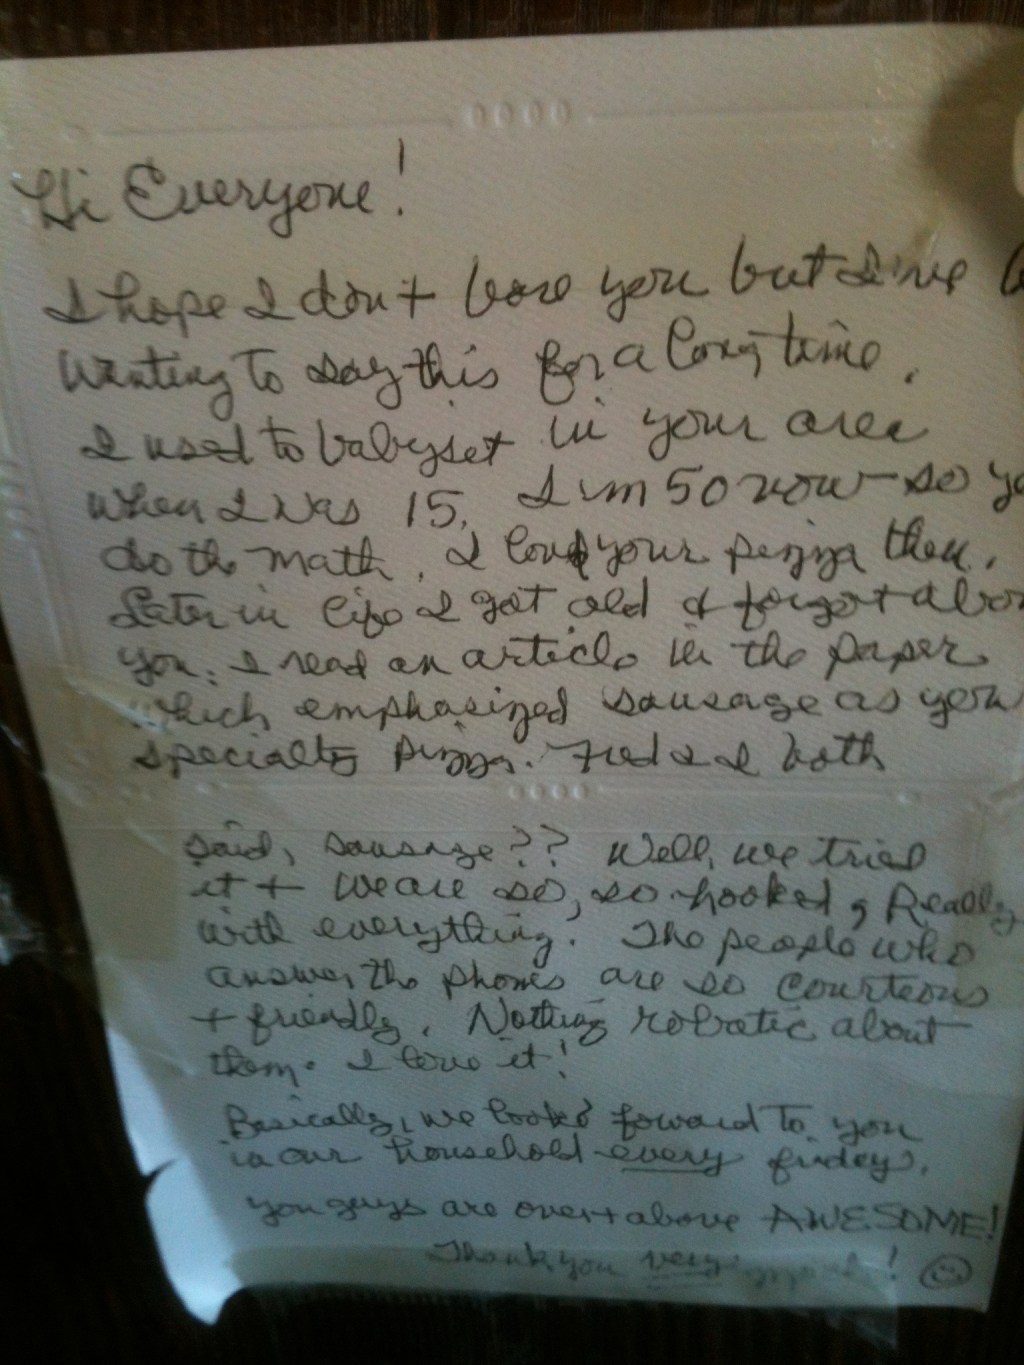 Hi Everyone!
I hope I don't bore you but I've
Wanting to say this for a long time.
I used to babyset in your area
When I was 15. I'm 50 now - so yo
do the math. I loved your pizza then.
Later in life I got old & forgot abou
you. I read an article in the paper
which emphasized sausage as your
specialty pizza. Fred & I both
said, sausage?? Well, we tried
it + we are so, so hooked, Really
with everything. The people who
answer the phones are so courteous
+ friendly. Nothing robotic about
them. I love it!
Basically, we look forward to you
in our household every friday.
you guys are over + above AWESOME!
Thank you very much!